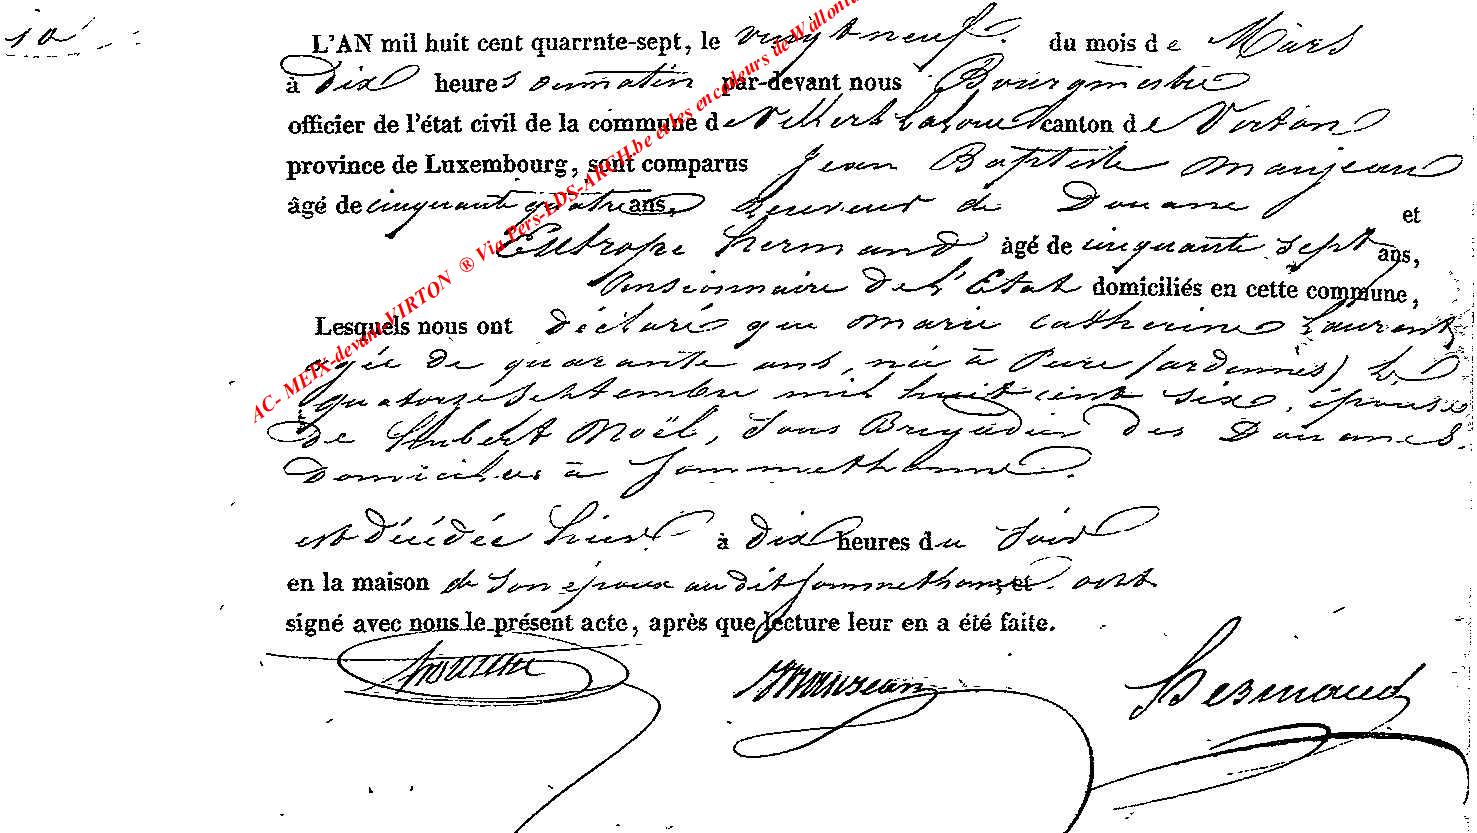 10
L'AN mil huit cent quarrnte-sept, le vingt neuf du mois de Mars
à dix heures du matin par-devant nous Bourgmestre
officier de l'état civil de la commune de Villers la loue canton de Virton
province de Luxembourg, sont comparus Jean Baptiste Manjean
âgé de cinquante quatre ans, Receveur de Douane et
Eutrope hermand âgé de cinquante sept ans,
Pensionnaire de l'Etat domiciliés en cette commune,
Lesquels nous ont déclaré que marie catherine Laurent
agée de quarante ans, née à Pure (ardennes) le
quatorze septembre mil huit cent six, épouse
de hubert Noël, Sous Brigadier des Douanes
domiciliés à Sommethonne.
est décédée hier à dix heures du soir
en la maison de son époux au dit Sommethonne, et ont
signé avec nous le présent acte, après que lecture leur en a été faite.
Manjean Hermand
AC- MEIX-devant-VIRTON ® Via Pers-LDS-ARCH.be et les encodeurs de Wallonie